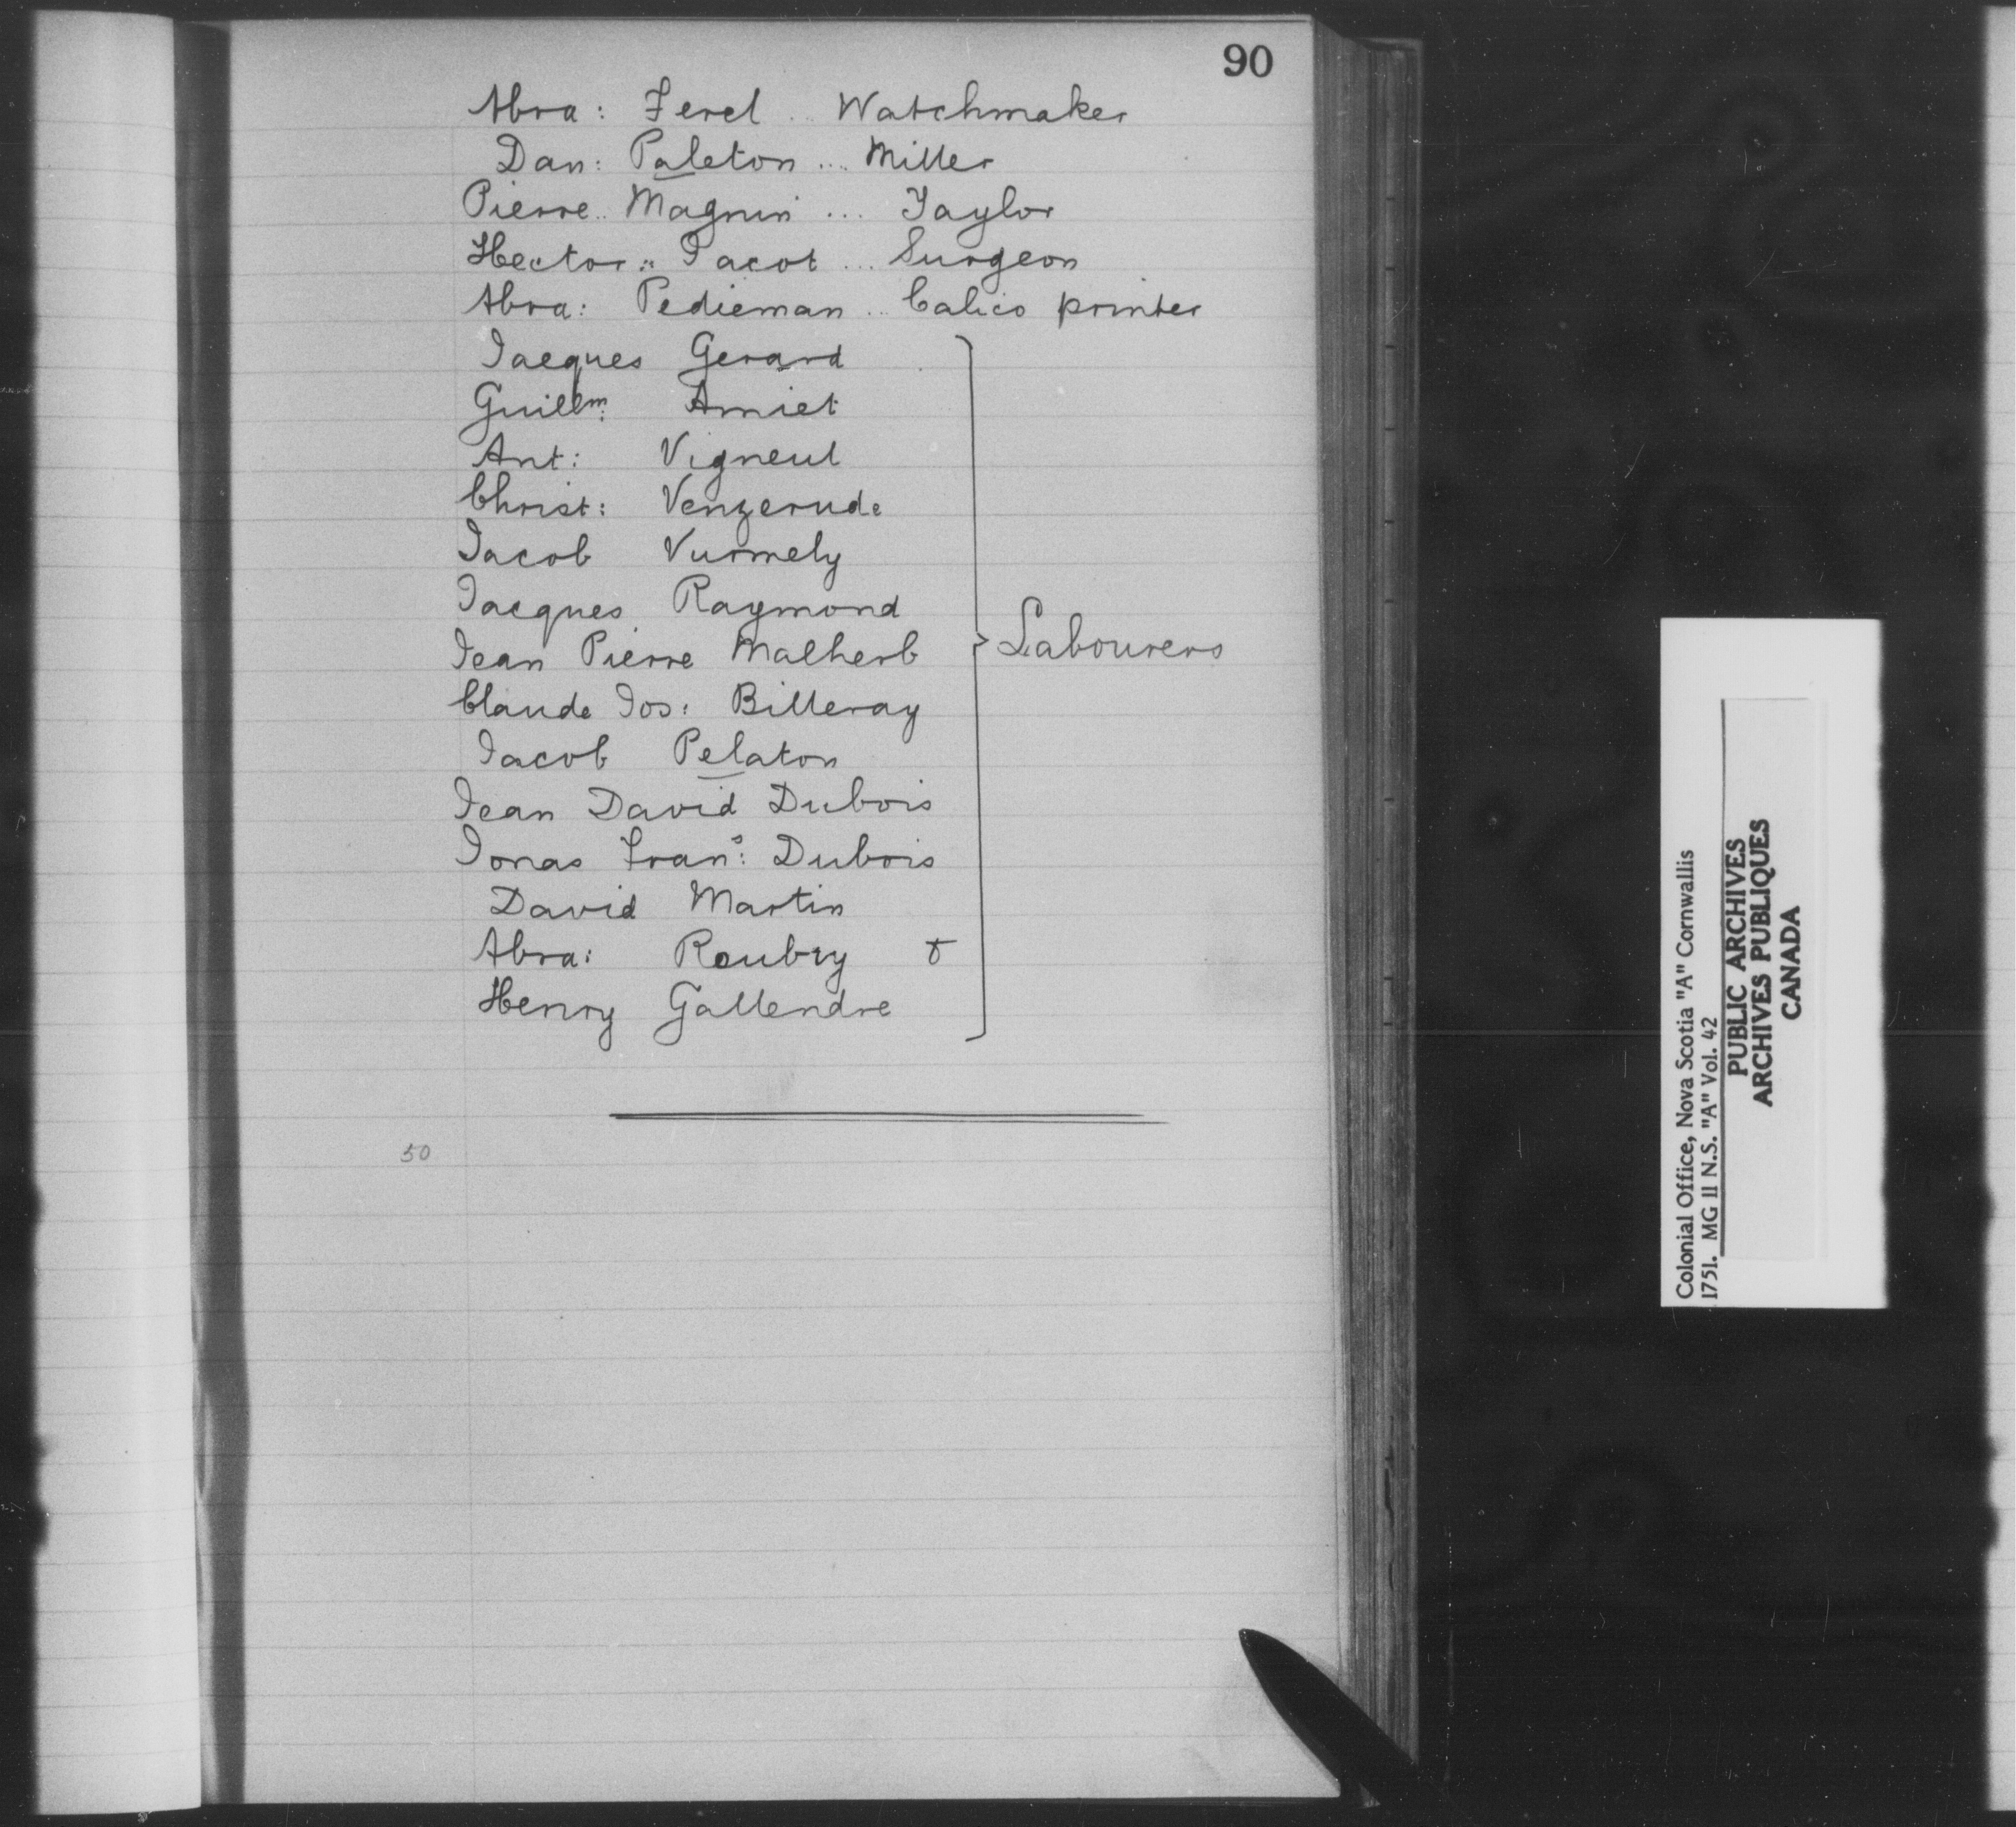 90
Abra: Ferel .. Watchmaker
Dan: Paleton .... Miller
Pierre .. Magnin ... Taylor
Hector :: Jacot ... Surgeon
Abra: Pedieman .. Calico printer
Jacques Gerard
Guillm: Amiet
Ant: Vigneul
Christ: Venzerude
Jacob Vurmely
Jacques Raymond
Jean Pierre Malherb
Labourers
Claude Jos: Billeray
Jacob Pelaton
Jean David Dubois
Jonas Frans: Dubois
David Martin
Abra: Roubry
Henry Gallendre
50
Colonial Office, Nova Scotia "A" Cornwallis
1751. MG 11 N.S. "A" Vol. 42
PUBLIC ARCHIVES
ARCHIVES PUBLIQUES
CANADA